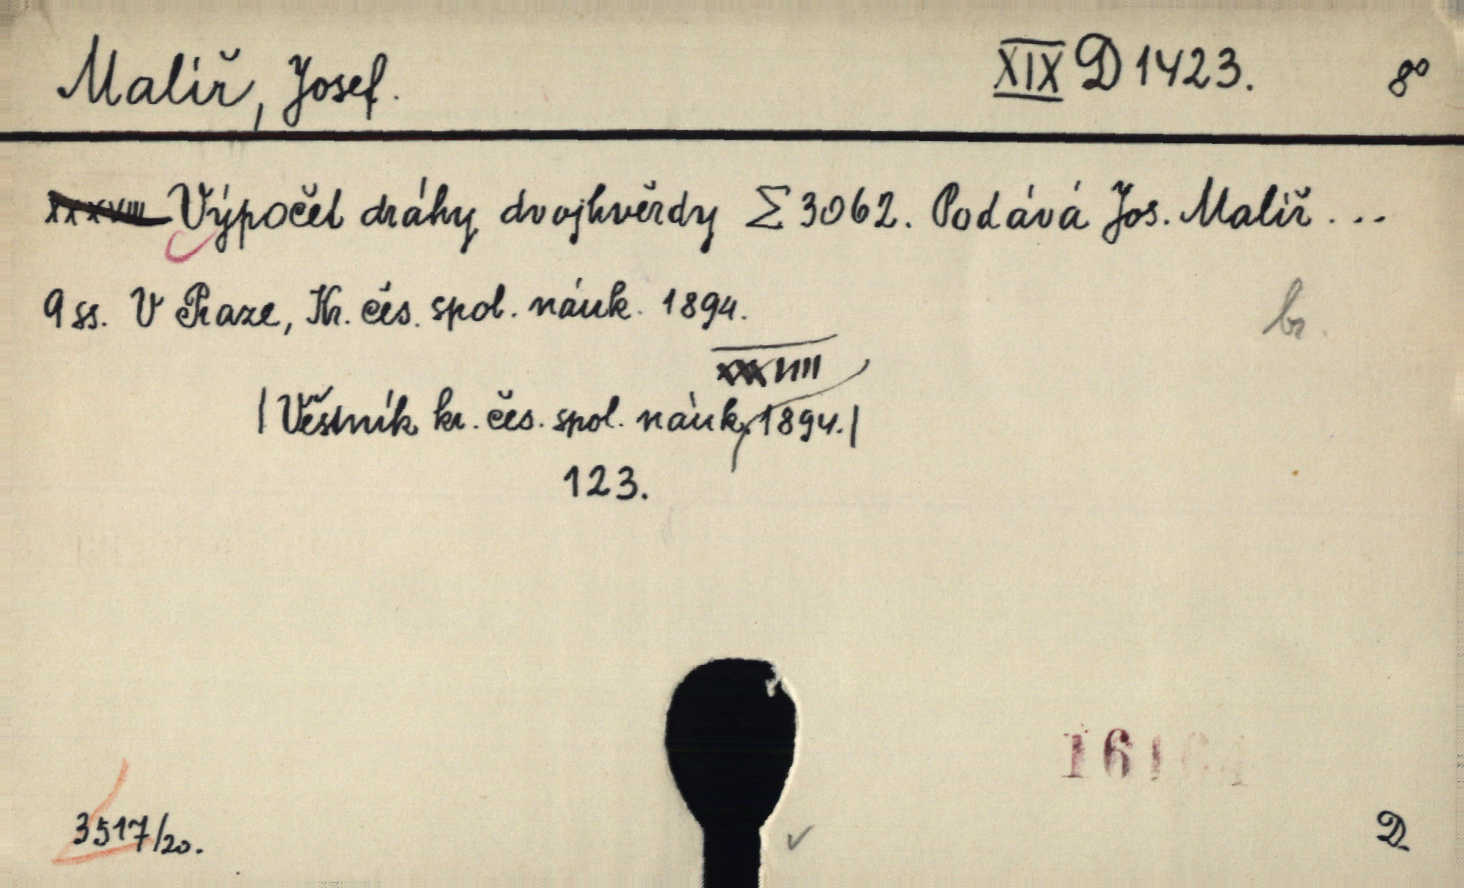 Malíř, Josef. XIX D 1423. 8°
XXXVIII Výpočet dráhy dvojhvězdy Σ 3062. Podává Jos. Malíř ...
9 ss. V Praze, Kr. čes. spol. náuk. 1894.
br.
XXXVIII
/Věstník kr. čes. spol. náuk, 1894./
123.
16164
3517/20.
D